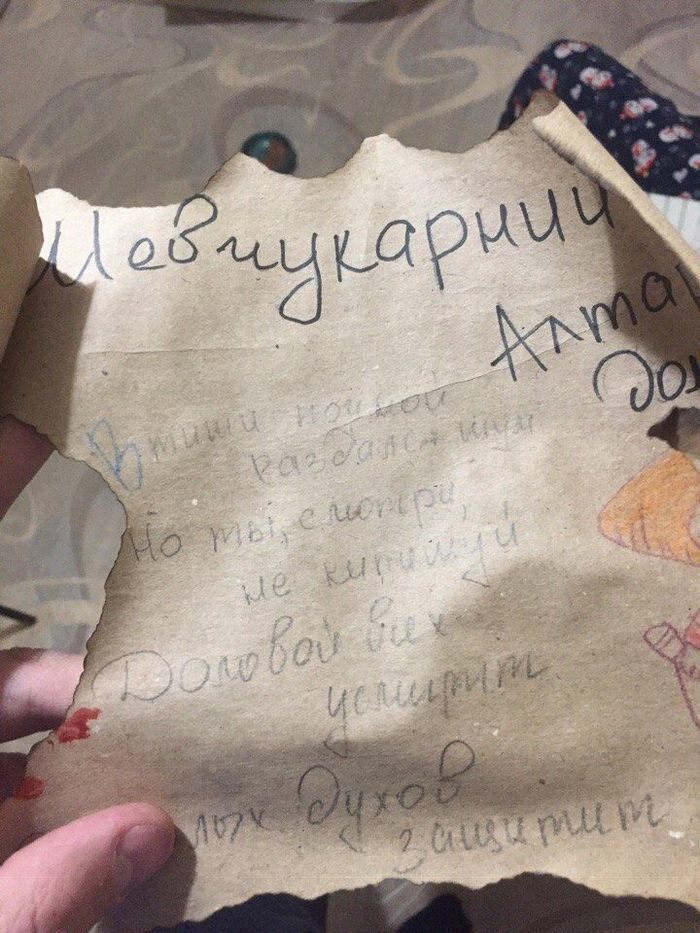 Алтар
До
В тиши ночной
раздался шум
Но ты, смотри,
не кипишуй
Домовой всех
усмирит
лых духов
защитит